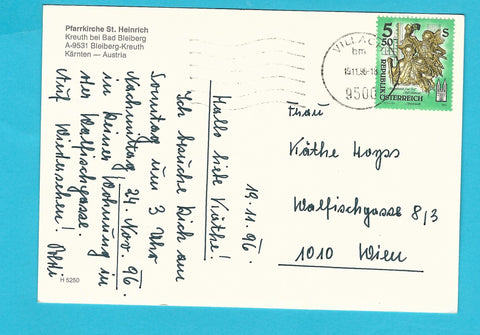 Pfarrkirche St. Heinrich
Kreuth bei Bad Bleiberg
A-9531 Bleiberg-Kreuth
Kärnten — Austria
19.11.96.
Hallo liebe Käthe!
Ich besuche Dich am
Sonntag um 3 Uhr
Nachmittag 24. Nov. 96.
in Deiner Wohnung in
der Walfischgasse.
Auf Wiedersehen!
H 5250
VILLACH
9500
5
50
S
REPUBLIK
ÖSTERREICH
Frau
Käthe
Walfischgasse 8/3
1010 Wien